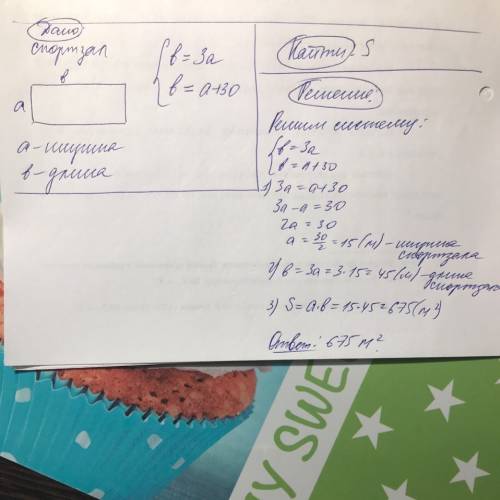 Дано
спортзал
в
а
а - ширина
в - длина
в = 3а
в = а+30
Найти: S
Решение:
Решим систему:
в = 3а
в = а+30
1) 3а = а+30
3а - а = 30
2а = 30
а = 30/2 = 15 (м) - ширина
спортзала
2) в = 3а = 3·15 = 45 (м) - длина
спортзала
3) S = а·в = 15·45 = 675 (м²)
Ответ: 675 м².
MY SWE